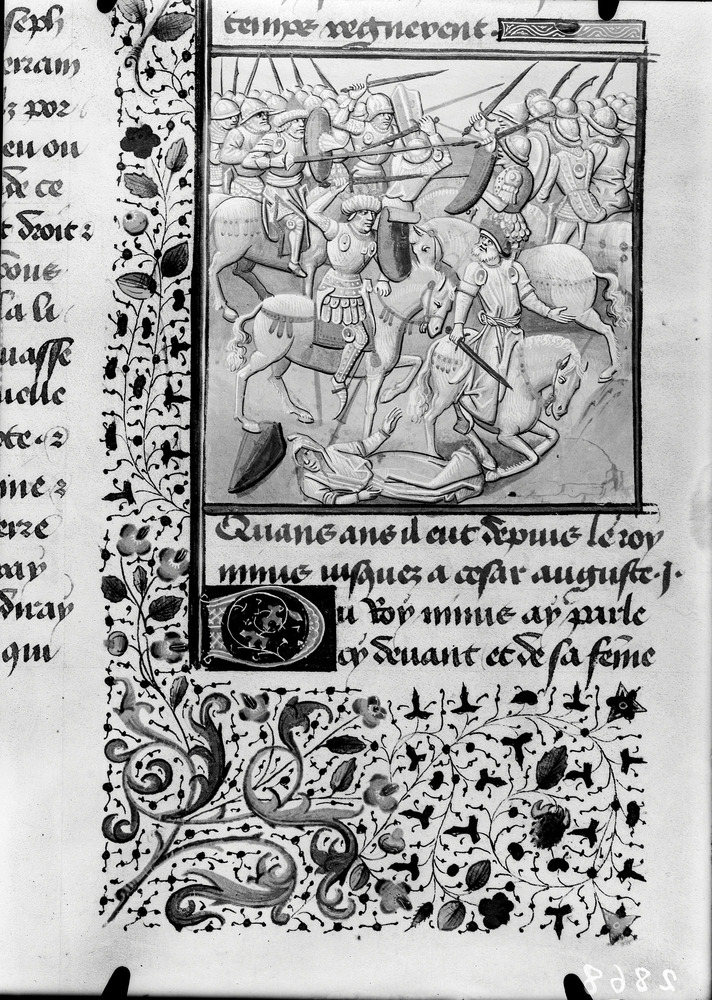 seph
erram
z por
eu ou
de ce
t droit z
pous
la li
uasse
uelle
pte z
mie z
erre
ray
diray
qui
temps regnerent.
Quans ans il eut depuis le roy
minus iusques a cesar auguste .j.
Du Roy minus ay parle
cy devant et de sa feme
2868